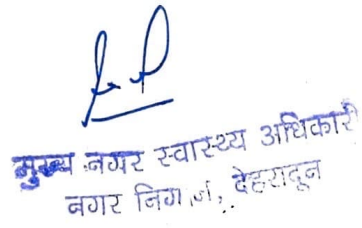 मुख्य नगर स्वास्थ्य अधिकारी
नगर निगम, देहरादून